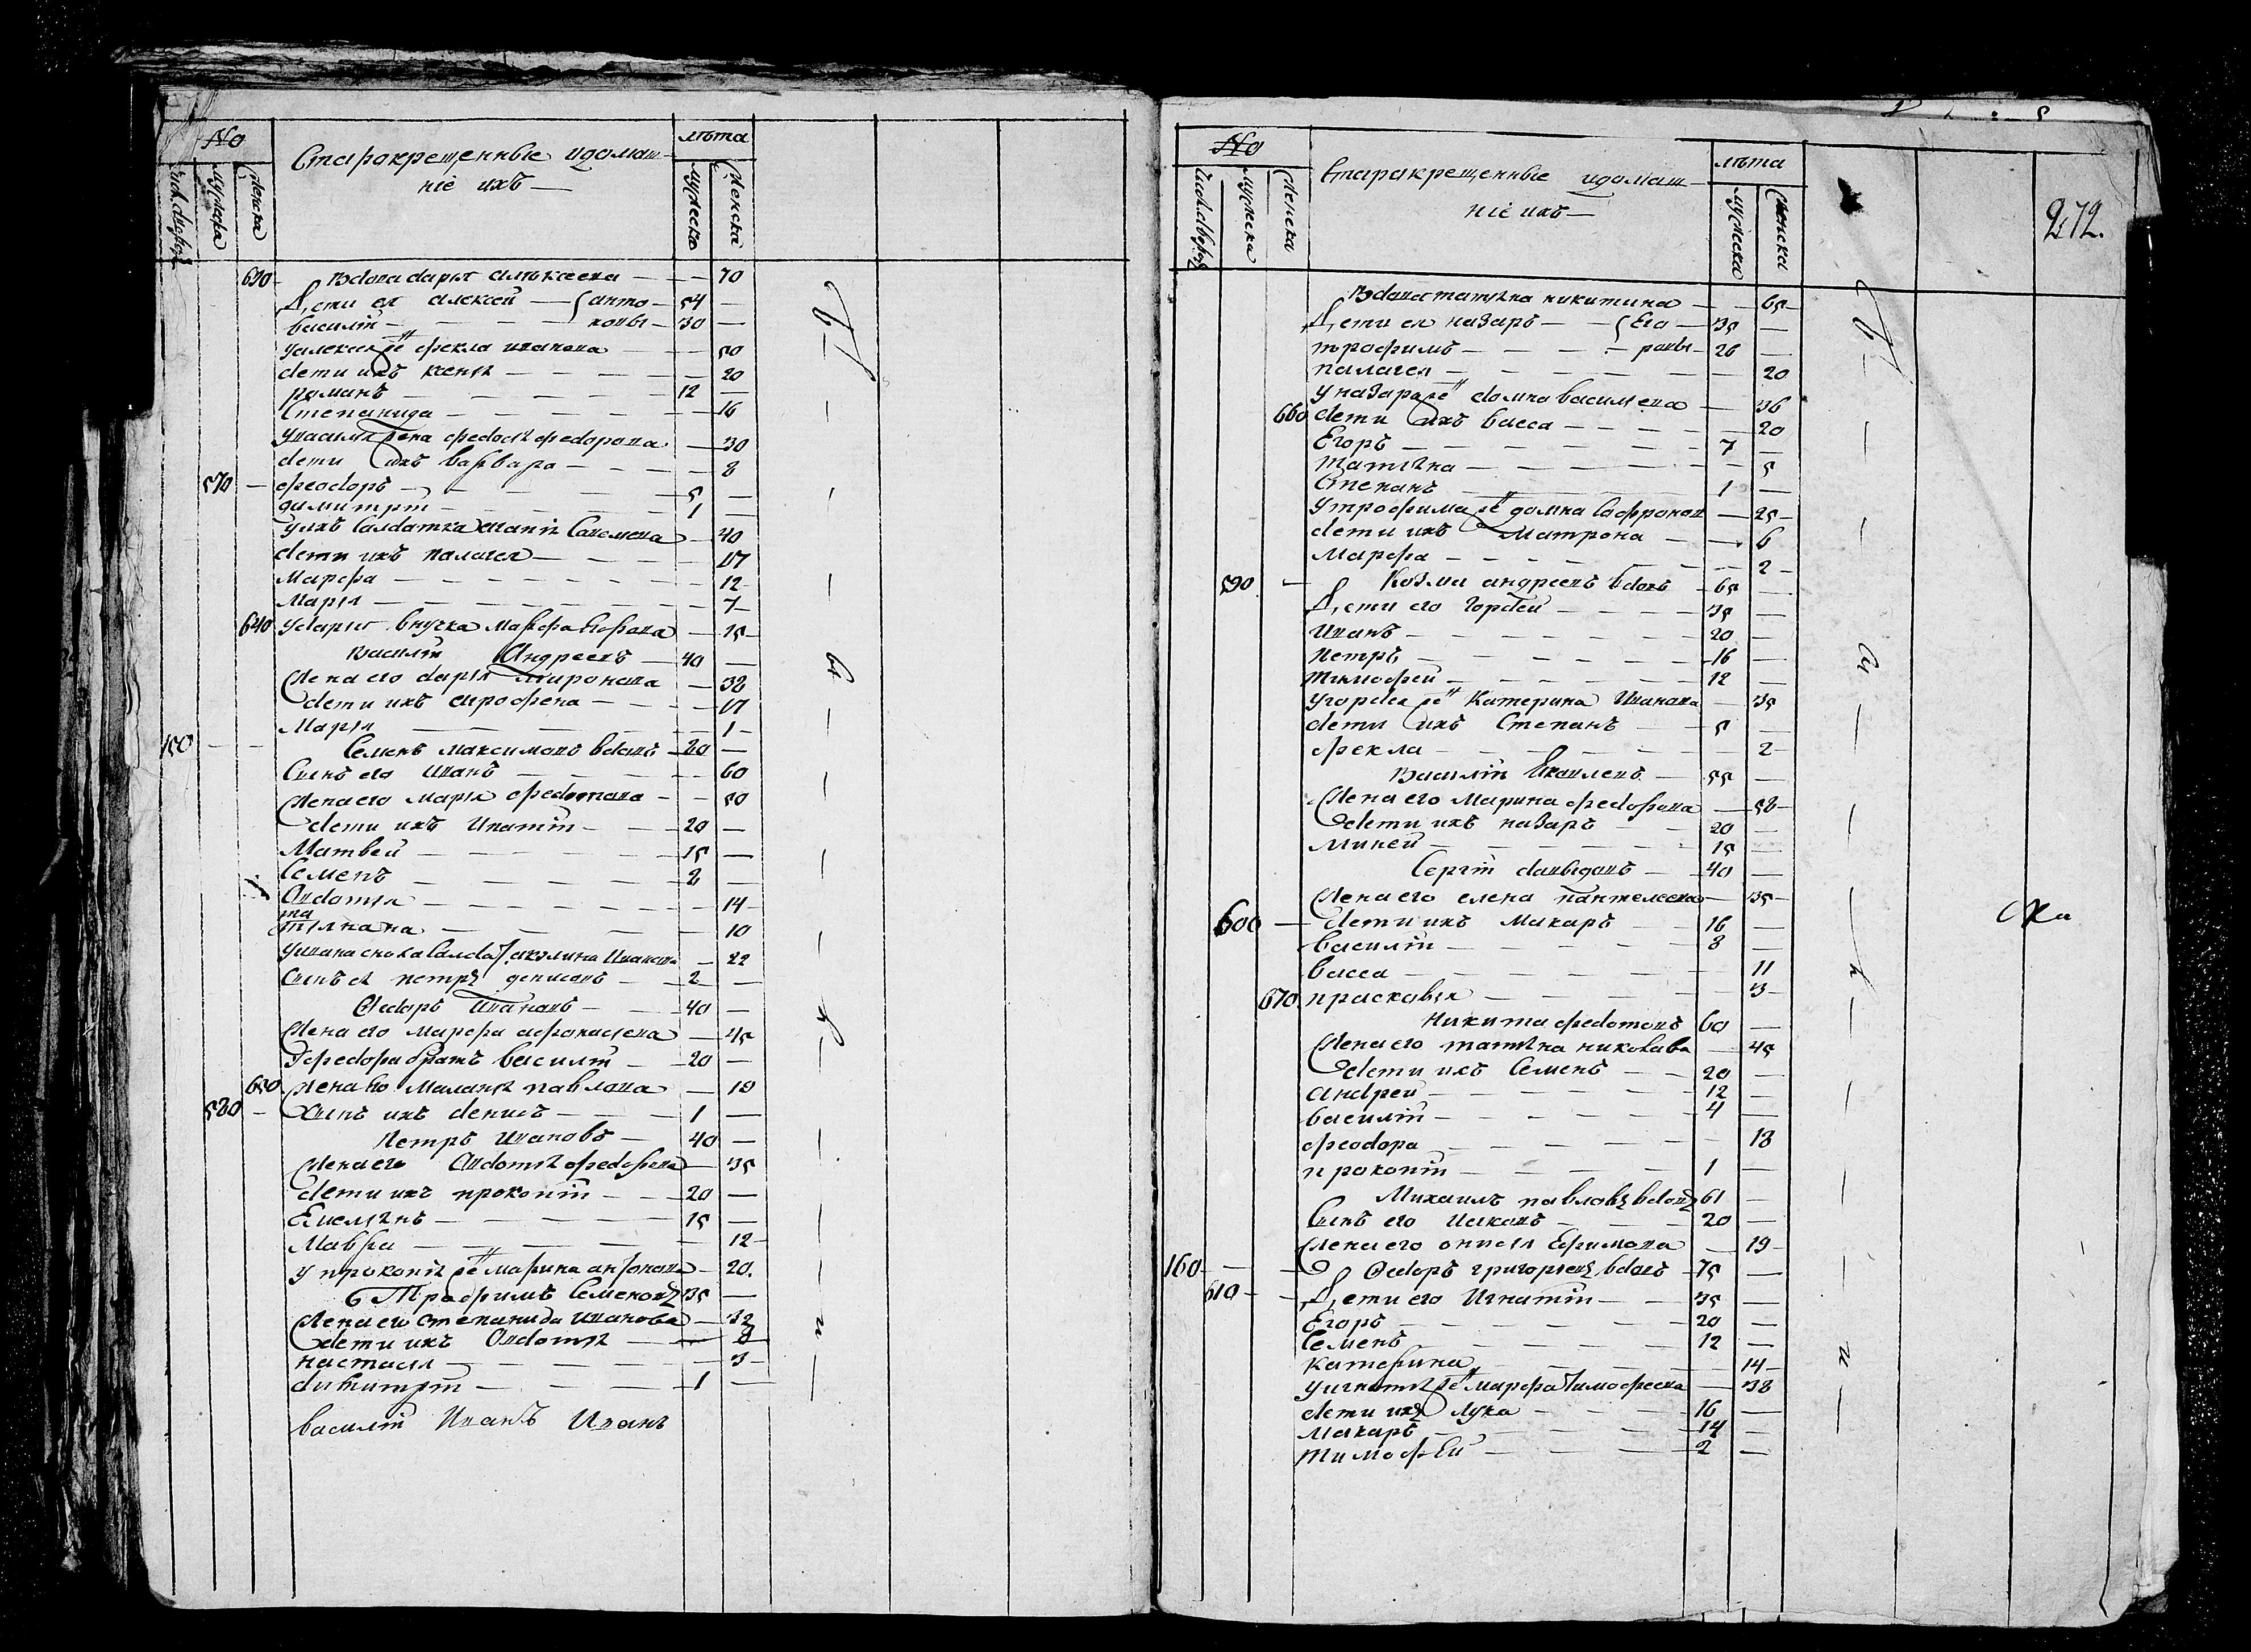 No
Старокрещенные идомаш-
ніе ихъ —
лѣта
мужеска
женска
мужеско
женска
630 Вдова дарья алѣксеева — — 70
Дети ея алексей — { анто — 54 —
василій — — — — новы — 30 —
уалексея же фекла иванова — — 50
дети ихъ ксенья — — — — 20
романъ — — — 12 —
Степанида — — — — 16
увасилья жена федосья федорова — 30
дети ихъ варвара — — — — 8
570 — феодоръ — — — — 5 —
димитрій — — — 1 —
унихъ Салдатка Савельева — 40
дети ихъ палагея — — — — 17
Марфа — — — — — — 12
Марья — — — — — — 7
640 Ударьи внучка Марфа — 15
Василій Андреевъ — 40 —
Жена его дарья миронова — 32
дети ихъ — — — 17
Марья — — — — 1
150 — — Семенъ максимовъ вдовъ — 20 —
Сынъ его иванъ — — — — 60
Жена его марья федотова — — 50
дети ихъ Игнатій — — — 20 —
Матвей — — — — 15 —
Семенъ — — — — 2 —
Овдотья — — — — — — 14
та
тьяна — — — — — 10
уивана сноха акулина Иванова — 22
Сынъ ея петръ денисовъ — — 2 —
Федоръ Ивановъ — — 40 —
Жена его марфа афонасьева — 45
уфедора братъ василій — — 20 —
650 жена ево Маланья павлова — 18
580 — Сынъ ихъ денисъ — — — 1 —
Петръ ивановъ — 40 —
Жена его Овдотья федорова — 35
дети ихъ прокопій — — — 20 —
Емельянъ — — — — 15 —
Мавра — — — — — 12
у прокопья же марина антонова — 20.
Трофимъ Семеновъ 35 —
Жена его степанида иванова — 32
дети ихъ Овдотья — — 8
настасья — — — — — 3
димитрій — — — — 1 —
василій Иванъ Иванъ
No
Старокрещенные идомаш-
ніе ихъ —
лѣта
272.
мужеска
женска
мужеска
женска
Вдова татьяна никитина — — 65
Дети ея назаръ — — { Его — 35 —
трофимъ — — — — ровы — 26 —
палагея — — — — — — 20
уназара же домна васильева — 36
660 дети ихъ васса — — — — 20
Егоръ — — — — — 7 —
Татьяна — — — — — — 5
Степанъ — — — 1 —
Утрофима же домна Софронов — 25
дети ихъ Матрона — — — 6
Марфа — — — — — — 2
590 — Козма андреевъ вдовъ — 65 —
Дети его Гордей — — — — 35 —
Иванъ — — — — — 20 —
Петръ — — — — — 16 —
Тимофей — — — — 12 —
угордея же Катерина Иванова — 35
дети ихъ Степанъ — — 5 —
фекла — — — — — — 2
Василій Яковлевъ — 55 —
Жена его Марина федорова — 58
дети ихъ назаръ — — 20 —
Михей — — — — — 15 —
Сергій давыдовъ — 40 —
Жена его елена пантелеева — 35
600 — дети ихъ Макаръ — — 16 —
василій — — — — — 8 —
васса — — — — — — 11
670 прасковья — — — — — 3
Никита федотовъ 60 —
Жена его татьяна николаева — 45
дети ихъ Семенъ — — 20 —
Андрей — — — — — 12 —
василій — — — — — 4 —
феодора — — — — — 18
прокопій — — — — 1 —
Михаилъ павловъ вдовъ 61 —
Сынъ его — — — 20 —
Жена его Ефимова — 19
160 — — Федоръ григорьевъ вдовъ — 75 —
610 — — Дети его Игнатій — — 35 —
Егоръ — — — — — 20 —
Семенъ — — — — 12 —
Катерина — — — — 14
уигнатья же марфа тимофеева — 38
дети ихъ лука — — — 16 —
макаръ — — — — 14 —
тимофей — — — — 2 —